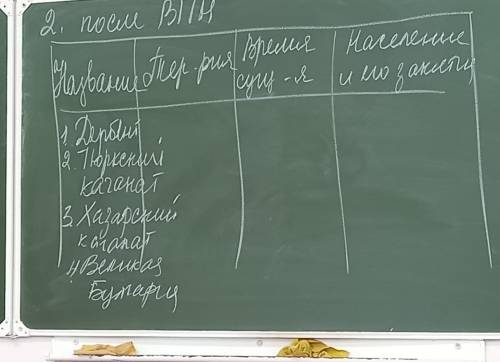 2. после ВПН
Название Тер-рия Время сущ-я Население и его занятия
1. Дербент
2. Тюркский
каганат
3. Хазарский
каганат
4. Великая
Булгария